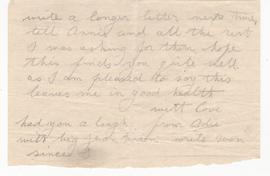 write a longer letter next time
tell Annie and all the rest
I was asking for them hope
this finds you quite well
as I am pleased to say this
leaves me in good health
with love
had you a laugh from
with write soon
since